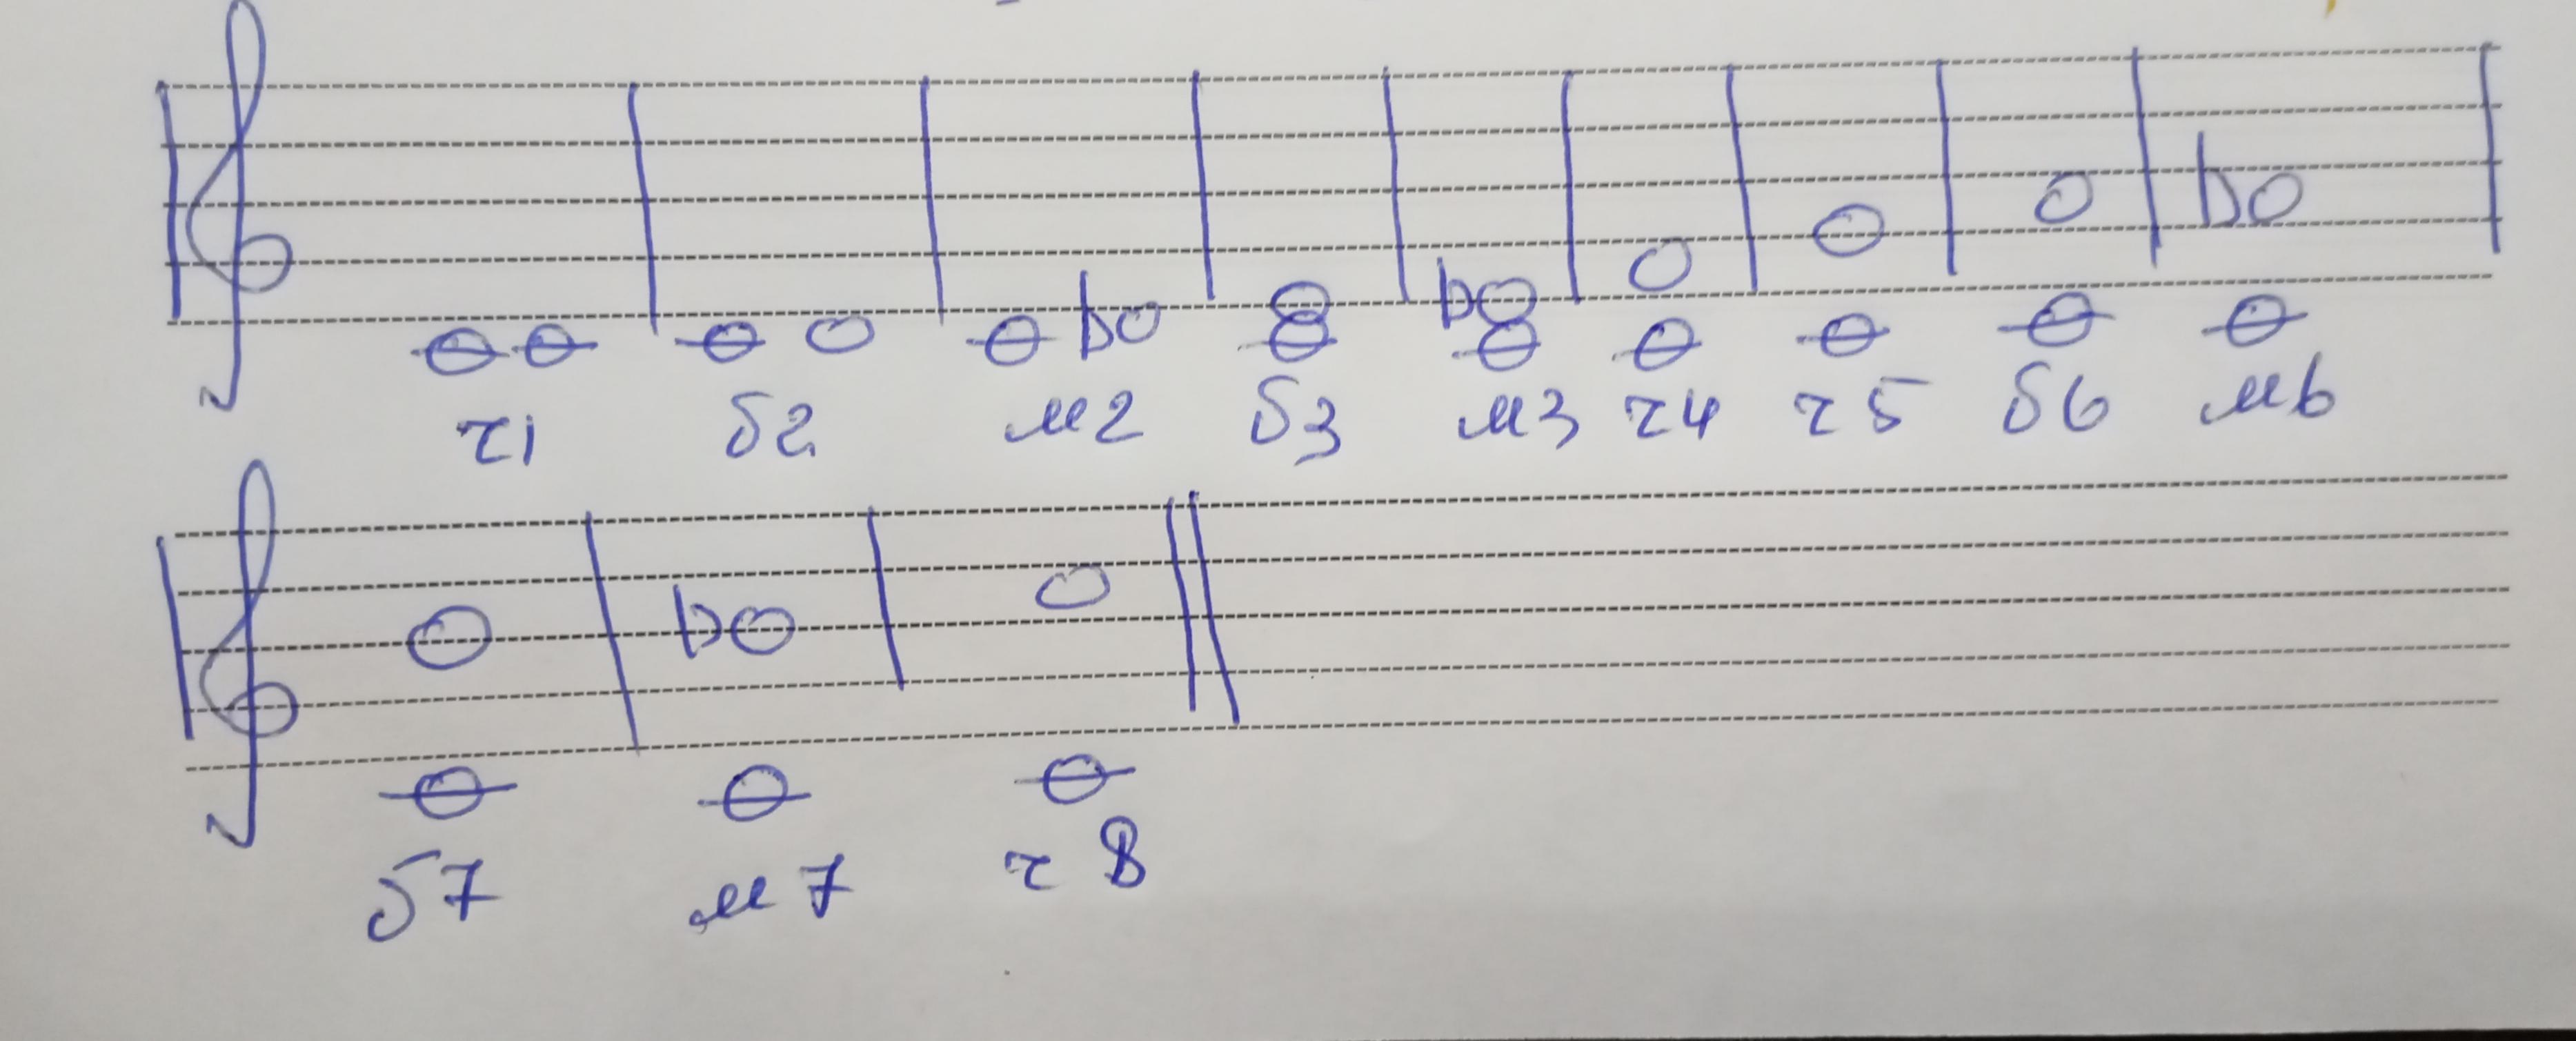 ч1 б2 м2 б3 м3 ч4 ч5 б6 м6
б7 м7 ч8